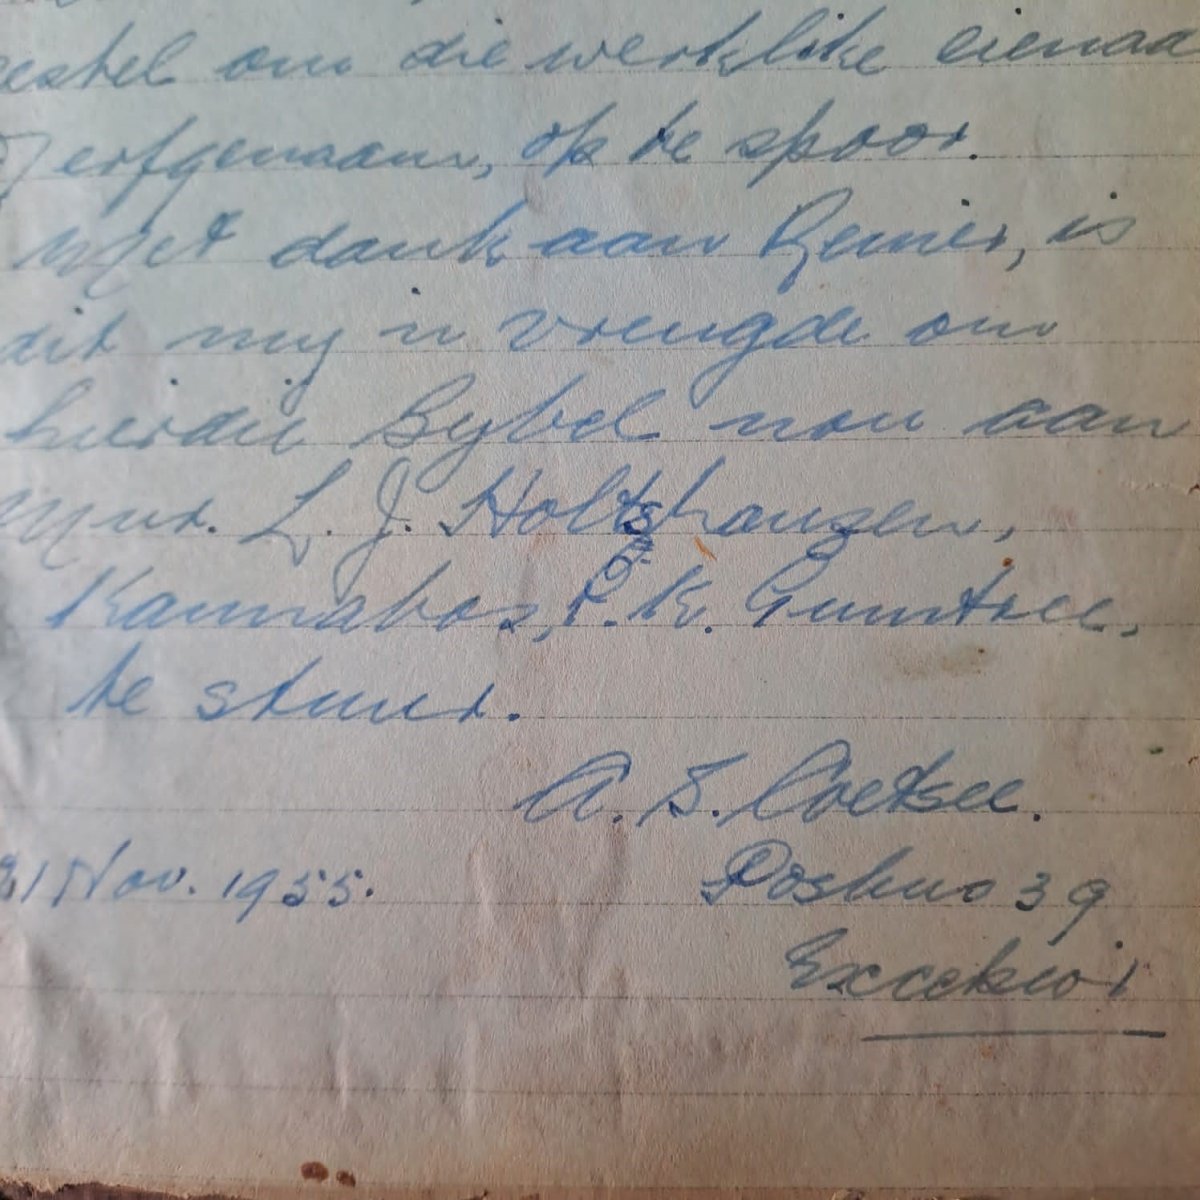 gestel om die werklike eienaa
of erfgenaam, op te spoor.
Met dank aan Reinier, is
dit my 'n vreugde om
hierdie Bybel nou aan
Mnr. L. J. Holtzhauzen,
Kannabos, P.K. Gumtree,
te stuur.
A. S. Coetsee.
21 Nov. 1955.
Posbus 39
Excelsior